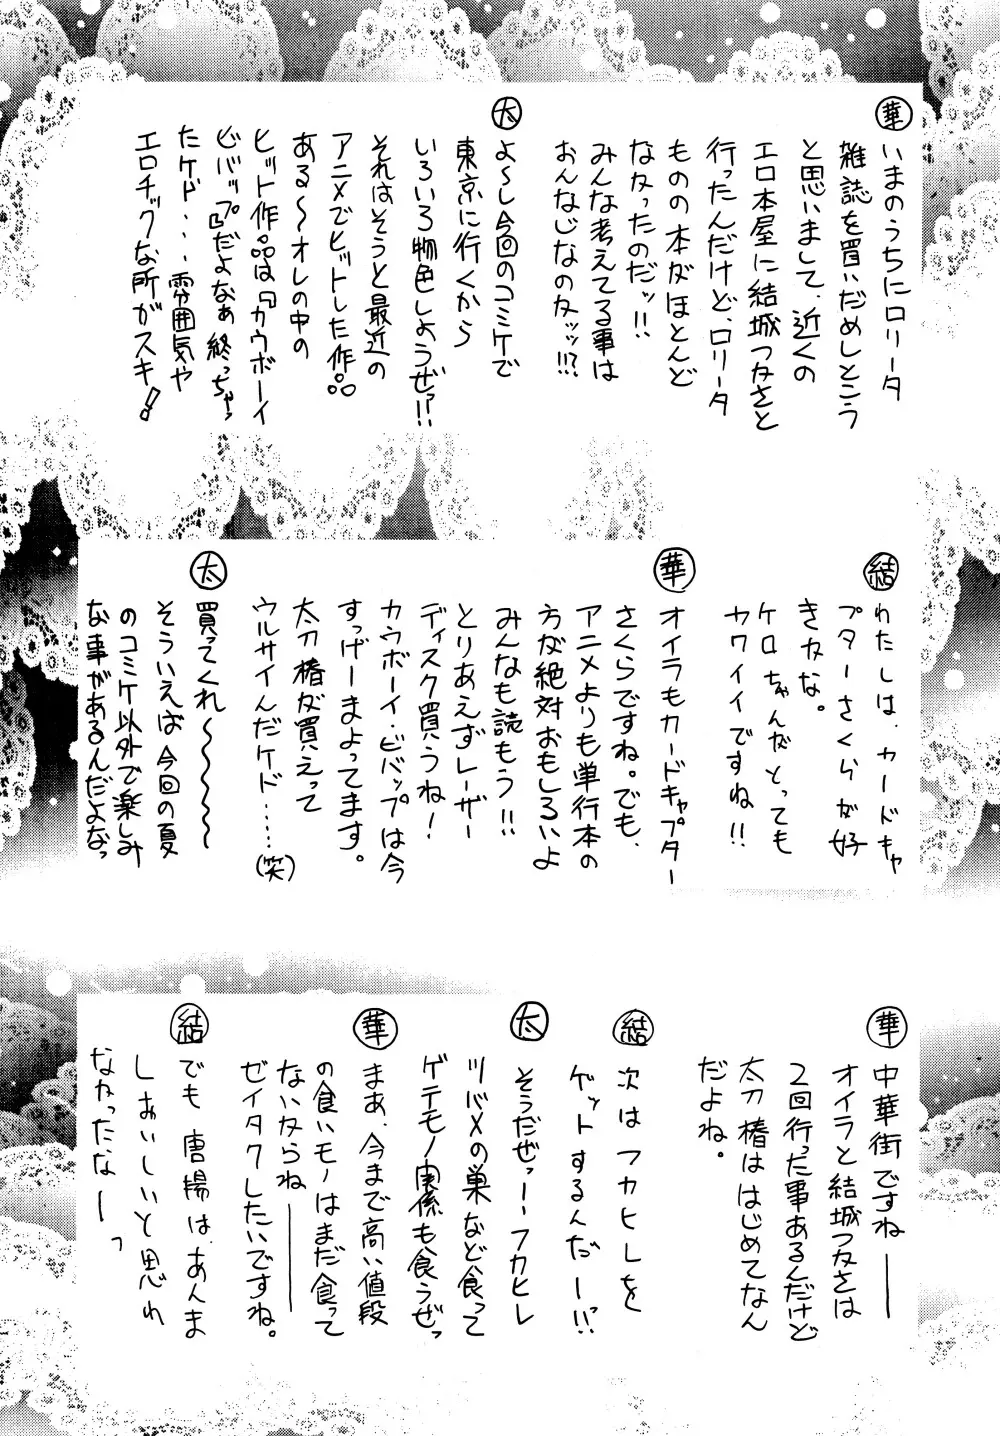 華
いまのうちにロリータ
雑誌を買いだめしとこう
と思いまして、近くの
エロ本屋に結城つかさと
行ったんだけど、ロリータ
ものの本がほとんど
なかったのだッ!!
みんな考えてる事は
おんなじなのかッッ!!?
太
よ〜し今回のコミケで
東京に行くから
いろいろ物色しようぜっ!!
それはそうと最近の
アニメでヒットした作品
ある〜オレの中の
ヒット作品は『カウボーイ
ビバップ』だよなぁ終っちゃっ
たケド...雰囲気や
エロチックな所がスキ!
結
わたしは、カードキャ
プターさくらが好
きかな。
ケロちゃんがとっても
カワイイですね!!
華
オイラもカードキャプター
さくらですね。でも、
アニメよりも単行本の
方が絶対おもしろいよ
みんなも読もう!!
とりあえずレーザー
ディスク買うね!
カウボーイ・ビバップは今
すっげーまよってます。
太刀椿が買えって
ウルサイんだケド......(笑)
太
買ってくれ〜〜〜〜〜
そういえば今回の夏
のコミケ以外で楽しみ
な事があるんだよなっ
華
中華街ですね――
オイラと結城つかさは
2回行った事あるんだけど
太刀椿ははじめてなん
だよね。
結
次はフカヒレを
ゲットするんだーっ!!
太
そうだぜっーフカヒレ
ツバメの巣など食って
ゲテモノ関係も食うぜっ
華
まあ、今まで高い値段
の食いモノはまだ食って
ないからね――
ゼイタクしたいですね。
結
でも 唐揚は、あんま
しおいしいと思わ
なかったなーっ